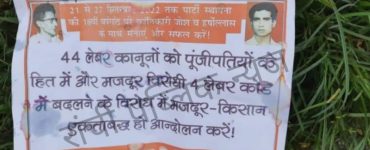 21 से 27 सितम्बर, 2022 तक पार्टी स्थापना
की 18वीं वर्षगांठ को क्रांतिकारी जोश व हर्षोल्लास
के साथ मनाएं और सफल करें!
44 लेबर कानूनों को पूंजीपतियों के
हित में और मजदूर विरोधी 4 लेबर कोड
में बदलने के विरोध में मजदूर-किसान
इकताबद्ध हो आन्दोलन करें!